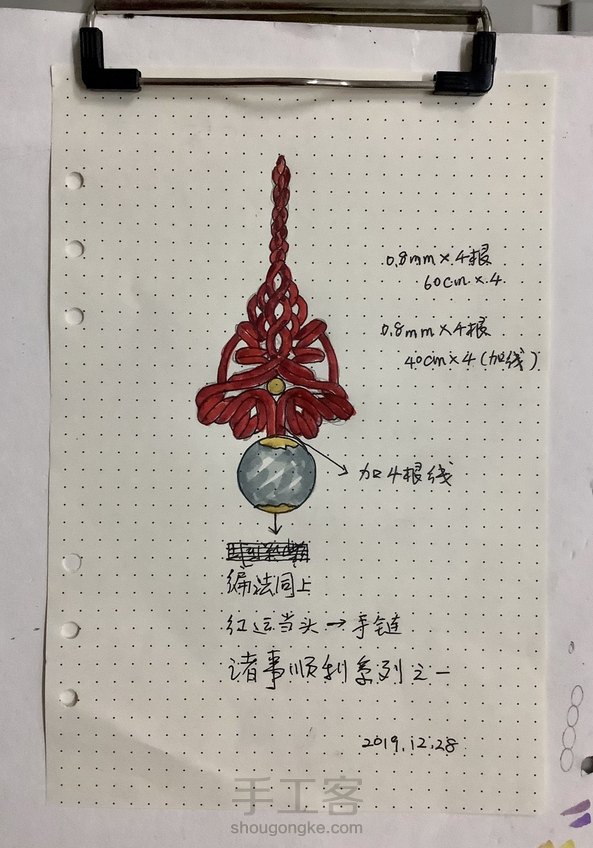 0.8mm×4根
60cm×4
0.8mm×4根
40cm×4(加线)
加4根线
编法同上
红运当头→手链
诸事顺利系列之一
2019.12.28
手工客
shougongke.com